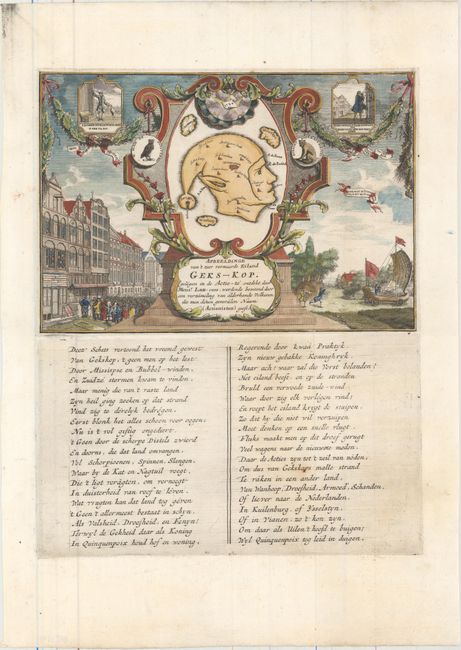 AFBEELDINGE
van't zeer vermaarde Eiland
GEKS-KOP.
geligen in de Actie-zé, ontdekt door
Monsr. Lau-rens, werdende bewoond door
een verzameling van alderhande Volkeren
die men dezen generalen Naam
(Actionisten) geeft.
Deez' Schets vertoond het vreemd gewest
Van Gekskop, 't geen men op het lest
Door Missisipse en Bubbel-winden,
En Zuidzé stormen kwam te vinden.
Maar menig die van 't vaste land
Zyn heil ging zoeken op dat strand
Vind zig te dérelyk bedrogen.
Eerst blonk het alles schoon voor oogen:
Nu is 't vol giftig ongediert:
't Geen door de scherpe Distels zwierd
En doorns, die dat land omvangen,
Vol Schorpioenen, Spinnen, Slangen.
Waar by de Kat en Nagtuil voegt,
Die 't ligt veragten, om vernoegt
In duisterheid van roof te leven.
Wat vrugten kan dat land tog geven
't Geen 't allermeest bestaat in schyn,
Als Valsheid, Droefheid, en Fenyn!
Terwyl de Gekheid daar als Koning
In Quinquenpoix houd hof en woning,
Regerende door kwaâ Praktyk.
Zyn nieuw gebakke Koninghryk.
Maar ach! waar zal die Vorst belanden?
Het eiland beeft: en op de stranden
Bruld een verwoede zuid-wind
Waar door zig elk verlégen vind:
En roept het eiland krygt de stuipen.
Zo dat hy die niet wil verzuipen
Moet denken op een snelle vlugt.
Fluks maakt men op dit droef gerugt
Veel wagens naar de nieuwste moden.
Daar de Actien zyn tot 't zeil van noden.
Om dus van Gekskops malle strand
Te raken in een ander land,
Van Wanhoop, Droefheid, Armoed, Schanden,
Of liever naar de Nederlanden.
In Kuilenburg, of Ysselstyn,
Of in Vianen, zo 't kon zyn,
Om daar als Uilen 't hoofd te buigen;
Wyl Quinquenpoix tog leid in duigen.